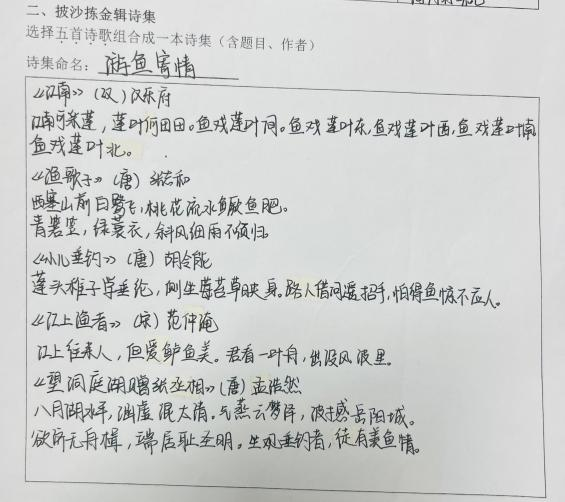 二、披沙拣金辑诗集
选择五首诗歌组合成一本诗集（含题目、作者）
诗集命名：游鱼寄情
《江南》（汉）汉乐府
江南可采莲，莲叶何田田。鱼戏莲叶间。鱼戏莲叶东，鱼戏莲叶西，鱼戏莲叶南，
鱼戏莲叶北。
《渔歌子》（唐）张志和
西塞山前白鹭飞，桃花流水鳜鱼肥。
青箬笠，绿蓑衣，斜风细雨不须归。
《小儿垂钓》（唐）胡令能
蓬头稚子学垂纶，侧坐莓苔草映身。路人借问遥招手，怕得鱼惊不应人。
《江上渔者》（宋）范仲淹
江上往来人，但爱鲈鱼美。君看一叶舟，出没风波里。
《望洞庭湖赠张丞相》（唐）孟浩然
八月湖水平，涵虚混太清。气蒸云梦泽，波撼岳阳城。
欲济无舟楫，端居耻圣明。坐观垂钓者，徒有羡鱼情。